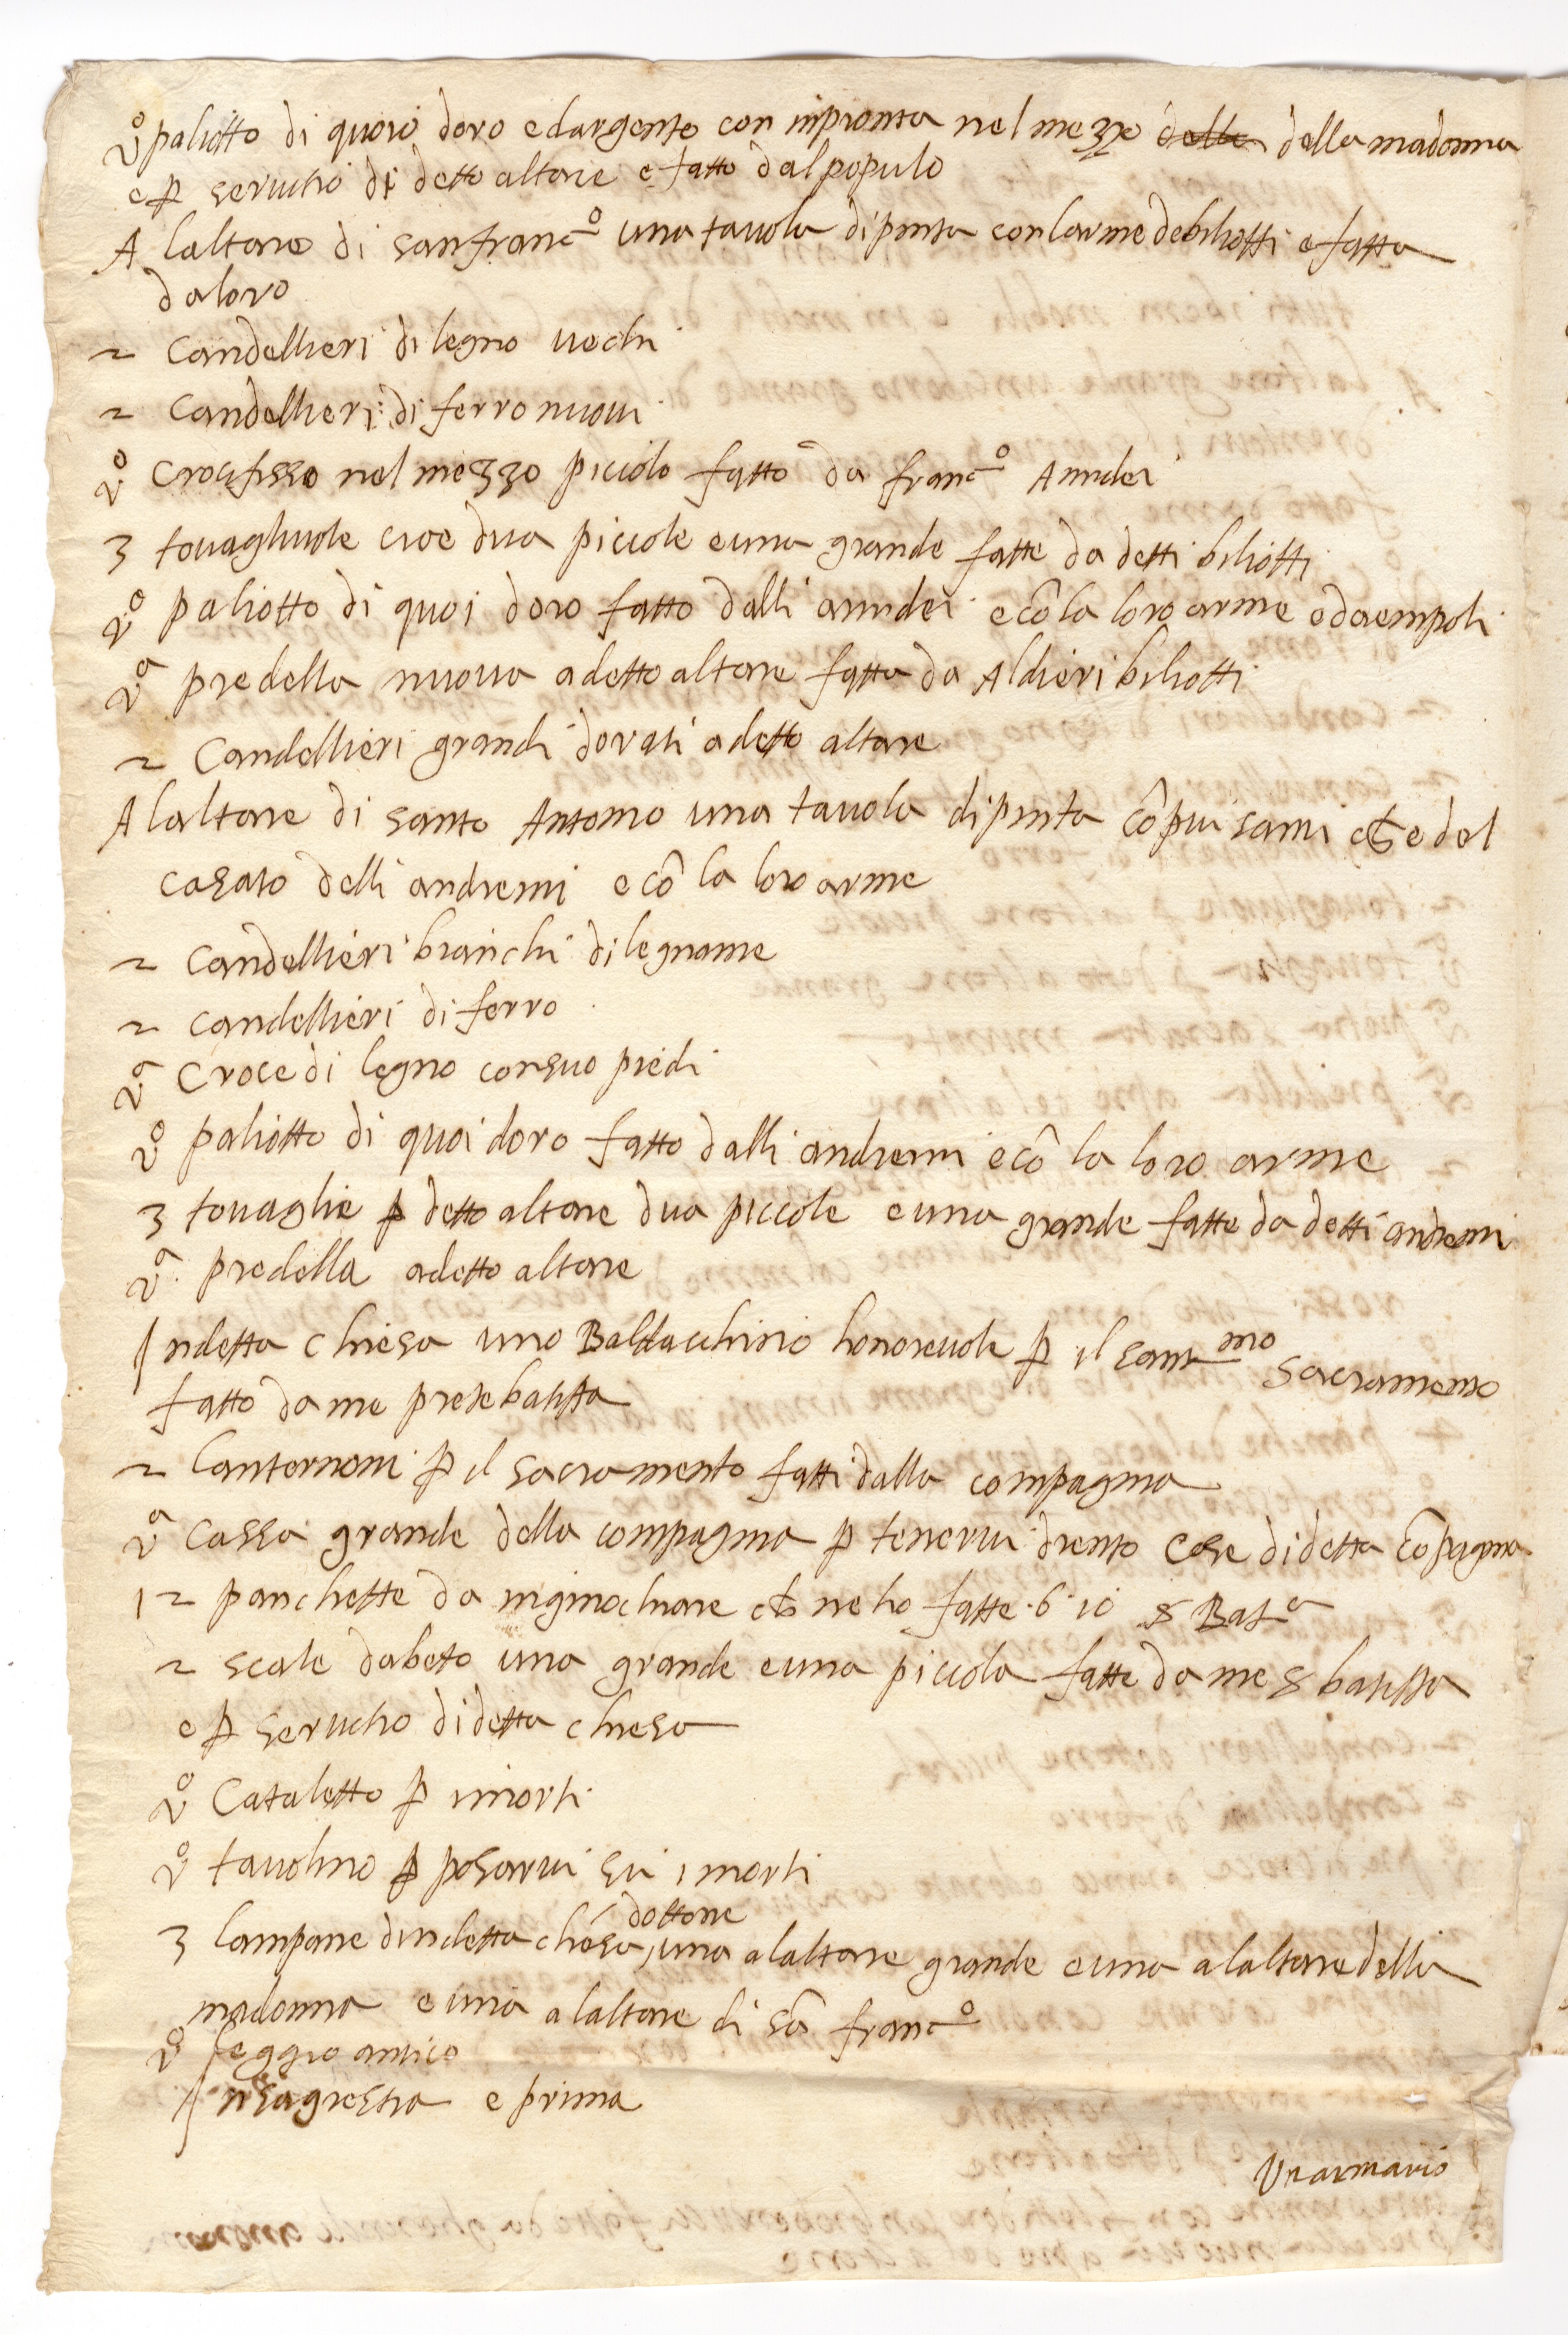 vº paliotto di quoio doro e dargento con inpronta nel mezzo delle della madonna
e p servitio di detto altare e fatto dal popolo
A laltare di san francº una tavola dipinta con larme de biliotti e fatta
da loro
2 Candellieri di legno vechi
2 Candellieri di ferro nuovi
vº Crocifisso nel mezzo piccolo fatto da francº Amidei
3 tovagliuole cioe dua piccole e una grande fatte da detti biliotti
vº paliotto di quoi doro fatto dalli amidei e cō la loro arme e da empoli
vª predella nuova a detto altare fatta da Aldieri biliotti
2 Candellieri grandi dorati a detto altare
A laltare di santo Antonio una tavola dipinta cō piu santi che e del
casato delli andreini e cō la loro arme
2 Candellieri bianchi di legname
2 Candellieri di ferro
vª Croce di legno con suo piedi
vº paliotto di quoi doro fatto dalli andreini e cō la loro arme
3 tovaglie p detto altare dua piccole e una grande fatte da detti andreini
vª predella a detto altare
In detta chiesa uno Baldacchino honorevole p il santmo sacramento
fatto da me prete batista
2 lanternoni p il sacramento fatti dalla compagnia
vª Cassa grande della compagnia p tenervi drento cose di detta cōpagnia
12 panchette da inginochiare che ne ho fatte 6 io s Batª
2 scale dabeto una grande e una piccola fatte da me s batista
e p servitio di detta chiesa
vº Cataletto p i morti
vº tavolino p posarvi su i morti
3 lampane di in detta chiesa dottone, una a laltare grande e una a laltare della
madonna e una a laltare di sā francº
vº seggio antico
In sagrestia e prima
Un armario